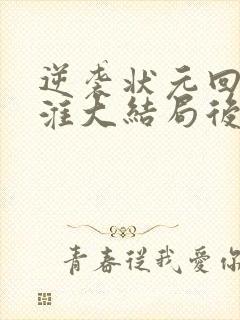 逆袭状元回
淮大結局後
青春從我愛你